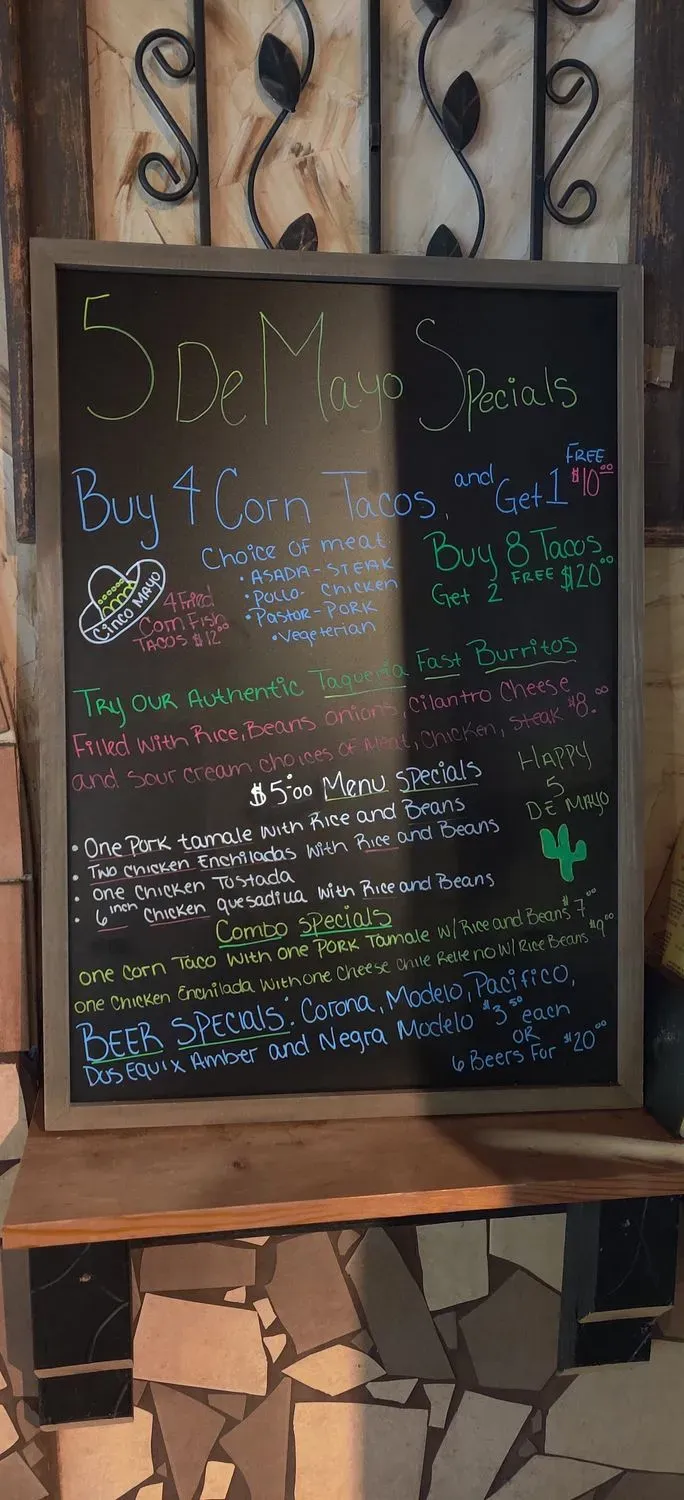 5 De Mayo Specials
Buy 4 Corn Tacos, and Get 1 FREE $10.00
Choice of meat.
• ASADA - STEAK
• Pollo - Chicken
• Pastor - PORK
• Vegeterian
Buy 8 Tacos
Get 2 FREE $20.00
CINCO MAYO
4 Fried
Corn Fish
TACOS $12.00
TRY OUR Authentic Taqueria Fast Burritos
Filled with Rice, Beans onions, cilantro Cheese
and sour cream choices of Meat, Chicken, steak $8.00
HAPPY
5
DE MAYO
$5.00 Menu specials
• One Pork tamale with Rice and Beans
• Two chicken Enchiladas with Rice and Beans
• one Chicken Tostada
• 6 inch Chicken quesadilla with Rice and Beans
Combo specials
one Corn Taco with one PORK Tamale W/Rice and Beans $7.00
one Chicken Enchilada With one Cheese chile Relleno W/ Rice Beans $9.00
BEER SPECIALS: Corona, Modelo, Pacifico,
Dos Equix Amber and Negra Modelo $3.50 each
OR
6 Beers For $20.00